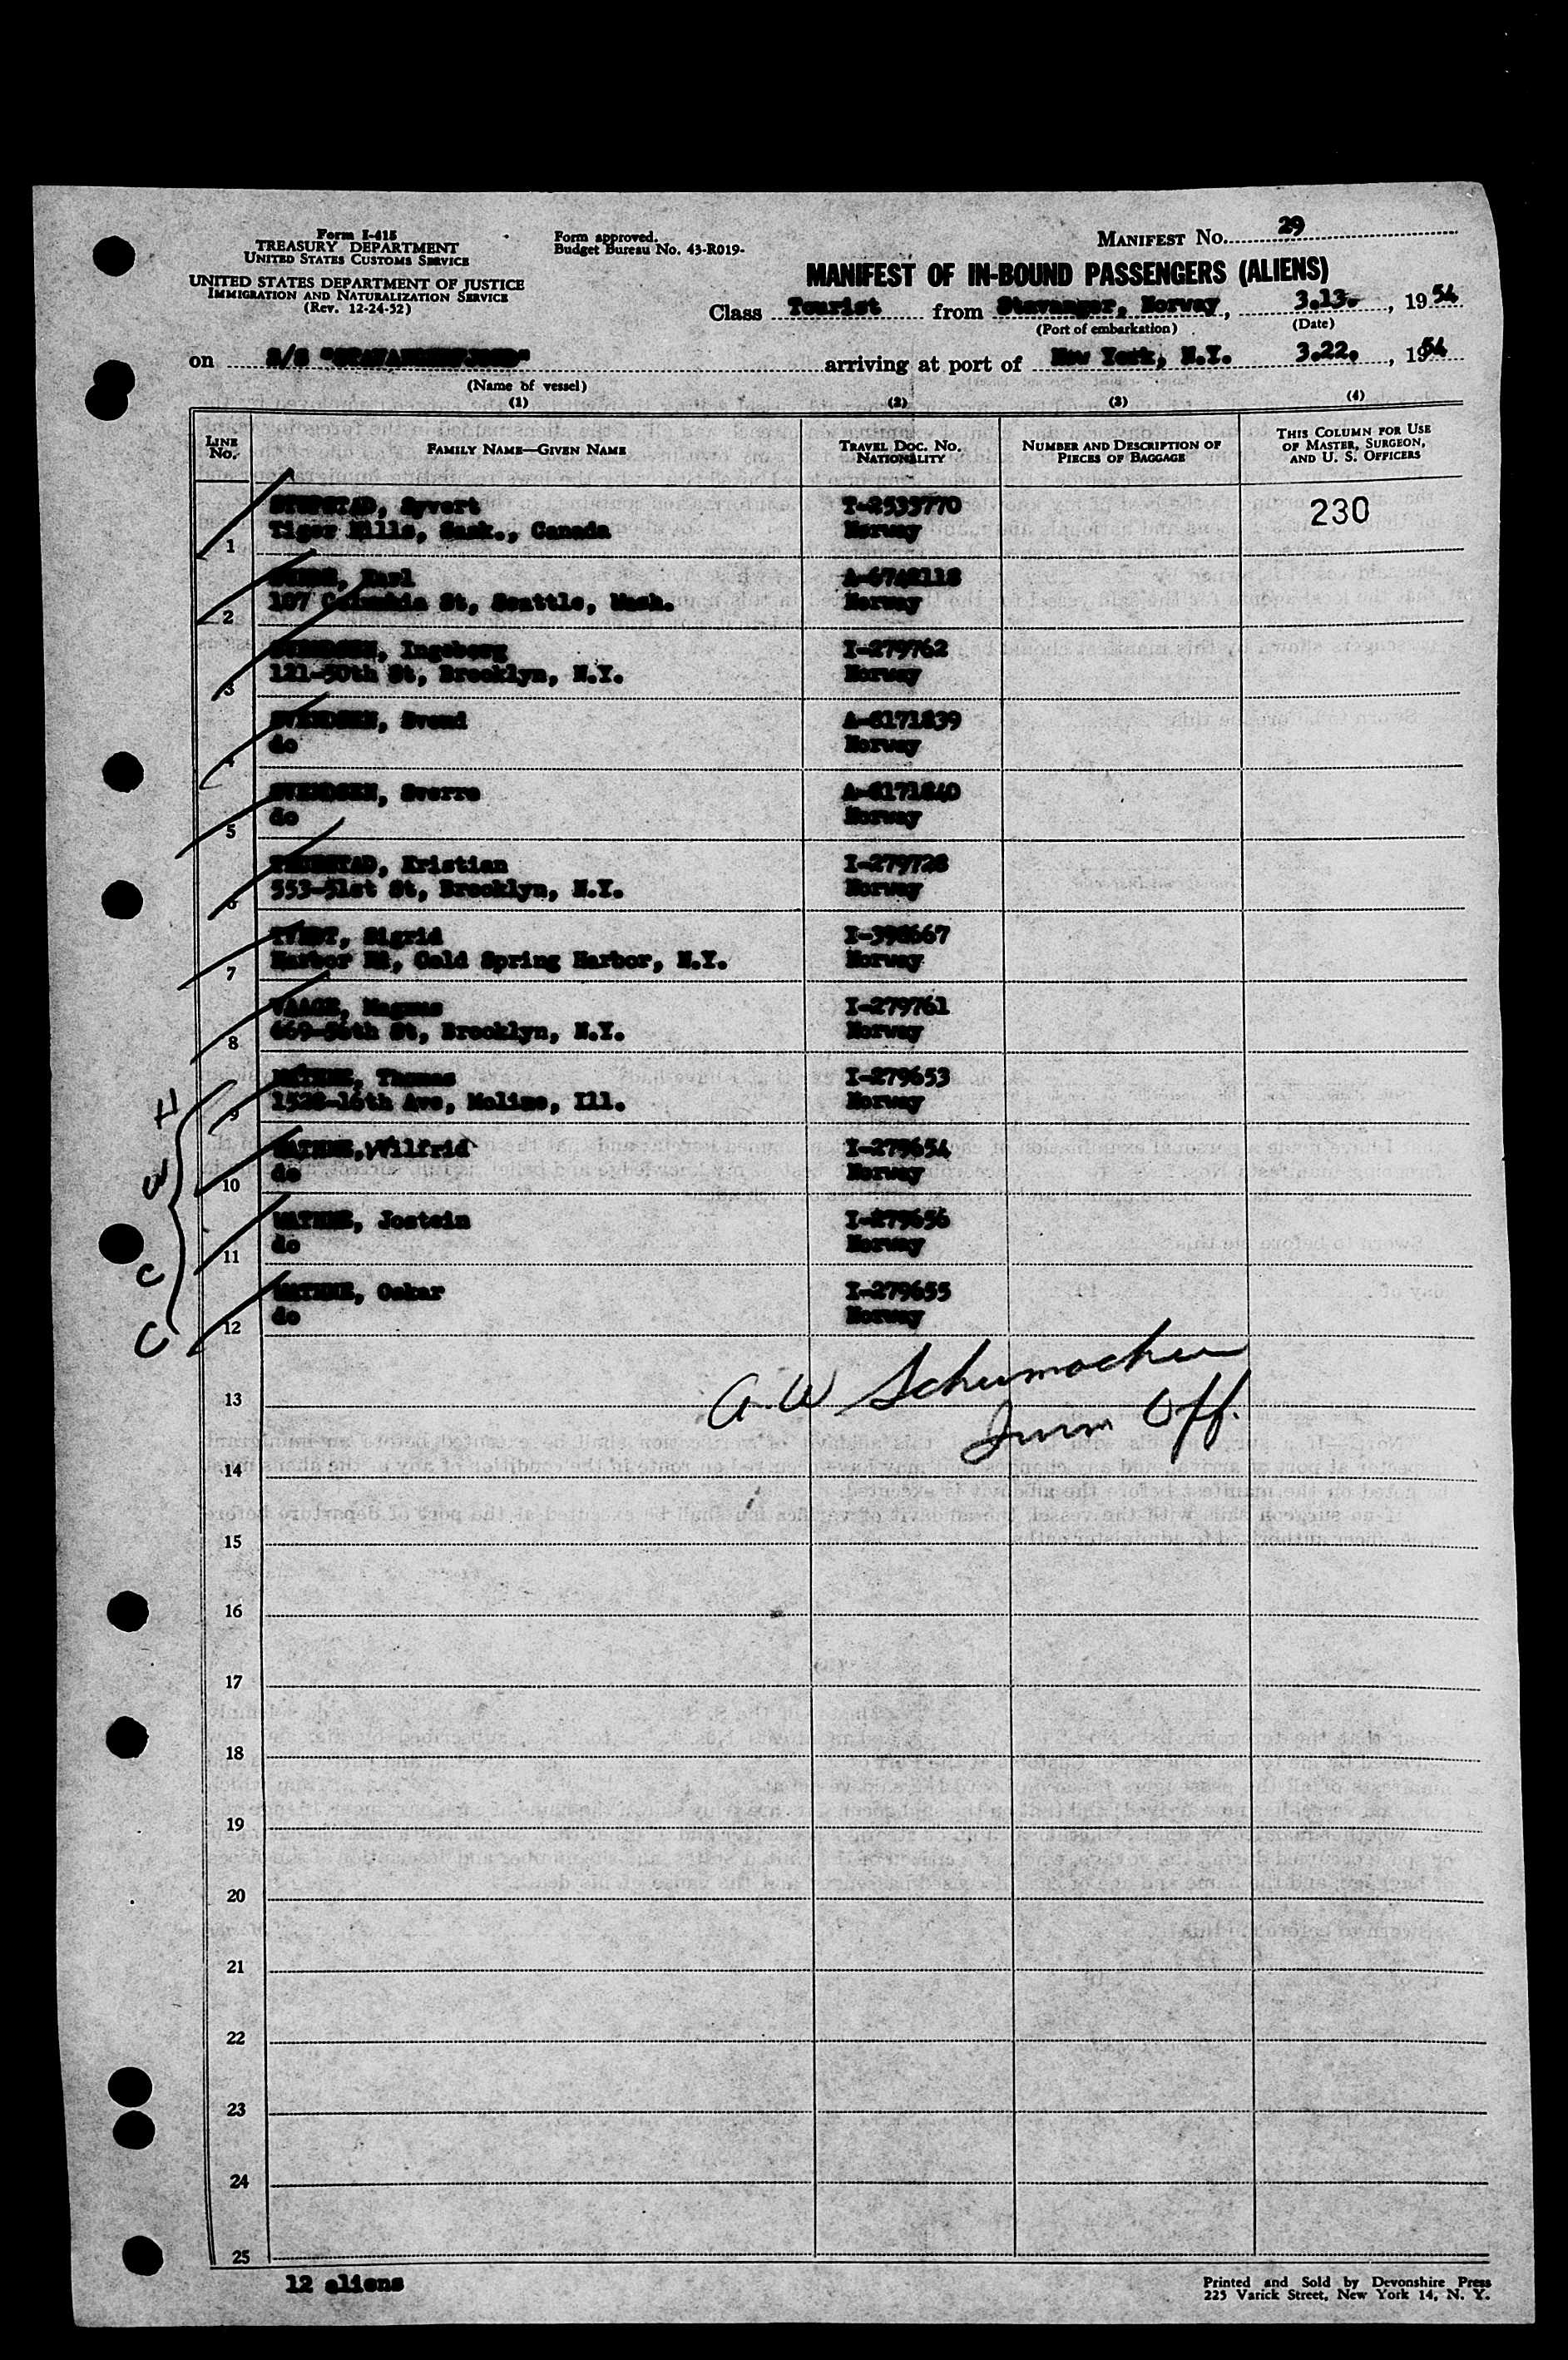 Form I-415
TREASURY DEPARTMENT
UNITED STATES CUSTOMS SERVICE
UNITED STATES DEPARTMENT OF JUSTICE
IMMIGRATION AND NATURALIZATION SERVICE
(Rev. 12-24-52)
Form approved.
Budget Bureau No. 43-R019-
MANIFEST No. 29
MANIFEST OF IN-BOUND PASSENGERS (ALIENS)
Class Tourist from Stavanger, Norway, 3.13. , 1954
(Port of embarkation) (Date)
on S/S "STAVANGERFJORD" arriving at port of New York, N.Y. 3.22. , 1954
(Name of vessel)
(1) (2) (3) (4)
LINE No. FAMILY NAME—GIVEN NAME TRAVEL DOC. No. NATIONALITY NUMBER AND DESCRIPTION OF PIECES OF BAGGAGE THIS COLUMN FOR USE OF MASTER, SURGEON, AND U. S. OFFICERS
1 Syvert T-2533770 230
Tiger Hills, Sask., Canada Norway
2 Karl A-6748118
107 Columbia St, Seattle, Wash. Norway
3 SVENDSEN, Ingeborg I-279762
121-50th St, Brooklyn, N.Y. Norway
4 SVENDSEN, Svend A-8171839
do Norway
5 SVENDSEN, Sverre A-8171840
do Norway
6 Kristian I-279728
553-51st St, Brooklyn, N.Y. Norway
7 TVEDT, Sigrid I-398667
Harbor Rd, Cold Spring Harbor, N.Y. Norway
8 VAAGE, Magnus I-279761
669-56th St, Brooklyn, N.Y. Norway
9 WATHNE, Thomas I-279653
1528-16th Ave, Moline, Ill. Norway
10 WATHNE, Wilfrid I-279654
do Norway
11 WATHNE, Jostein I-279656
do Norway
12 WATHNE, Oskar I-279655
do Norway
A. W Schumacher
Imm Off.
13
14
15
16
17
18
19
20
21
22
23
24
25
12 aliens
Printed and Sold by Devonshire Press
225 Varick Street, New York 14, N. Y.